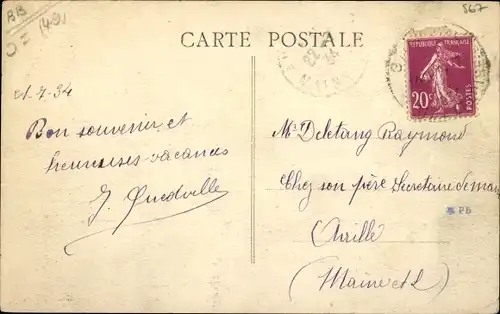 BB
567
CARTE POSTALE
REPUBLIQUE FRANÇAISE
20c
POSTES
Bon souvenir et
heureuses vacances
Mr Deletang Raymond
Chez son père Secrétaire de mairie
* PB
Avrillé
(Maine et L)